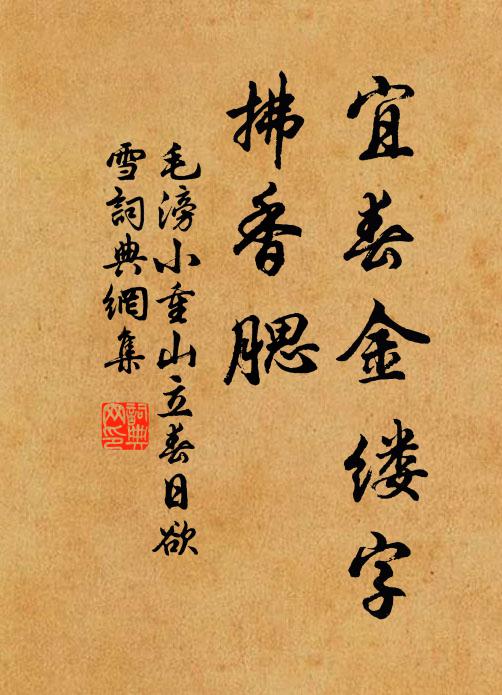 宜春金缕字
拂香腮
毛滂小重山立春日欲
雪詞典網集
詞典
网印